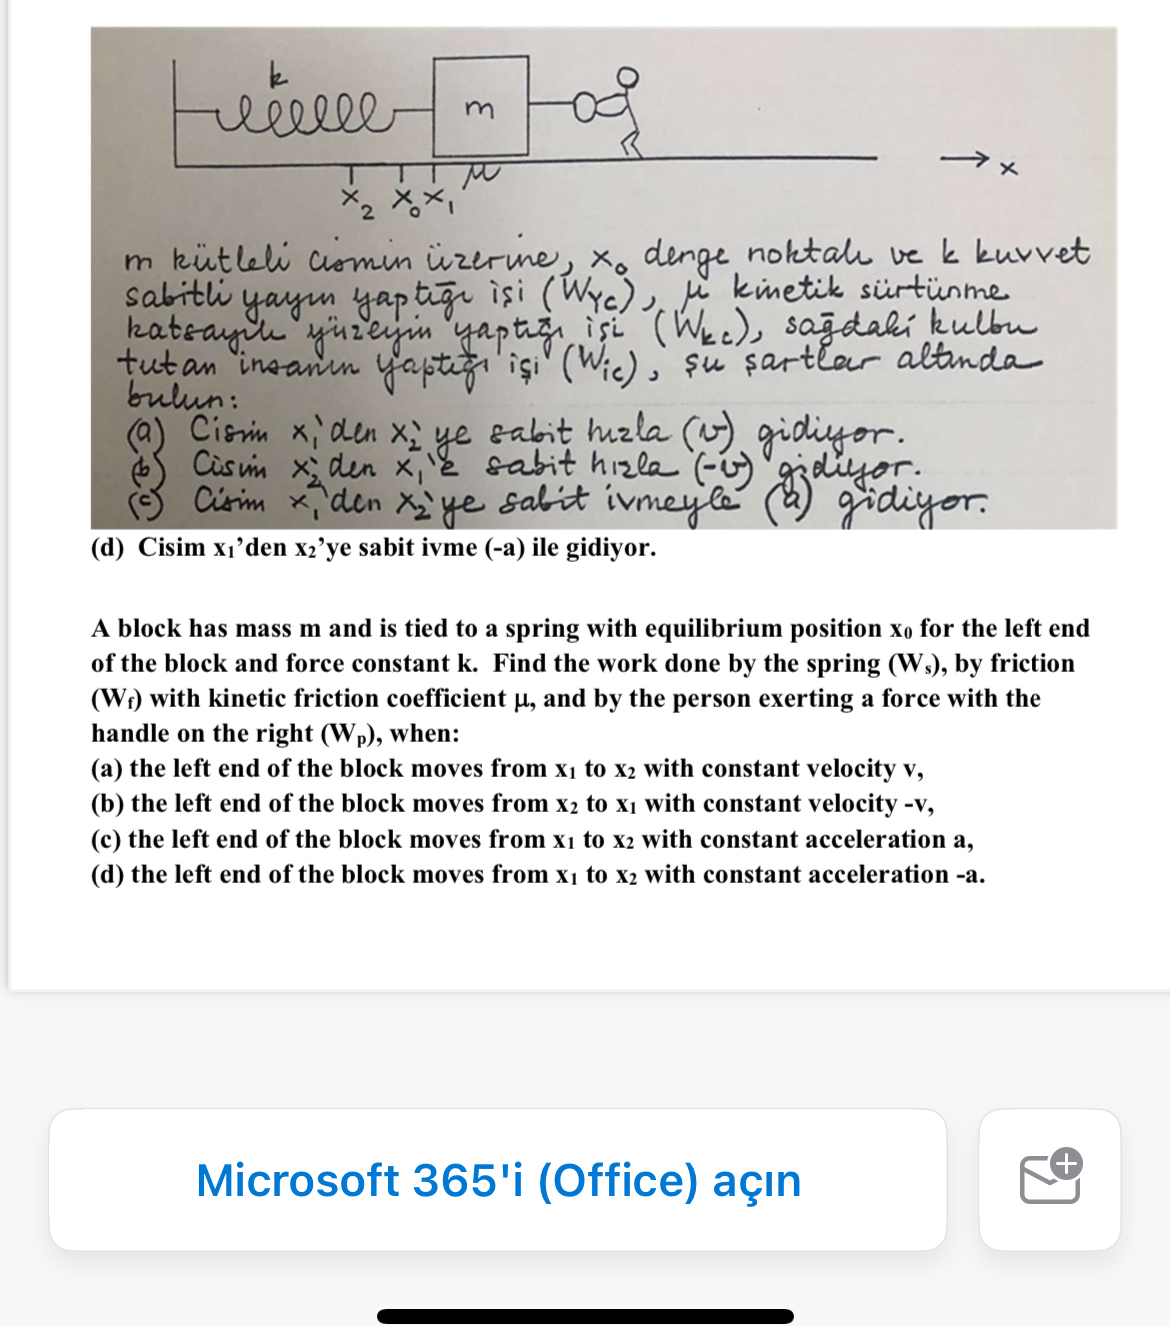 k
m
μ
x₂ x₀ x₁
→ x
m kütleli cismin üzerine, x₀ denge noktalı ve k kuvvet
sabitli yayın yaptığı işi (Wyc), μ kinetik sürtünme
katsayılı yüzeyin yaptığı işi (Wkc), sağdaki kulbu
tutan insanın yaptığı işi (Wic), şu şartlar altında
bulun:
(a) Cisim x₁'den x₂'ye sabit hızla (v) gidiyor.
(b) Cisim x₂'den x₁'e sabit hızla (-v) gidiyor.
(c) Cisim x₁'den x₂'ye sabit ivmeyle (a) gidiyor.
(d) Cisim x₁’den x₂’ye sabit ivme (-a) ile gidiyor.
A block has mass m and is tied to a spring with equilibrium position x₀ for the left end
of the block and force constant k. Find the work done by the spring (Wₛ), by friction
(Wf) with kinetic friction coefficient μ, and by the person exerting a force with the
handle on the right (Wₚ), when:
(a) the left end of the block moves from x₁ to x₂ with constant velocity v,
(b) the left end of the block moves from x₂ to x₁ with constant velocity -v,
(c) the left end of the block moves from x₁ to x₂ with constant acceleration a,
(d) the left end of the block moves from x₁ to x₂ with constant acceleration -a.
Microsoft 365'i (Office) açın